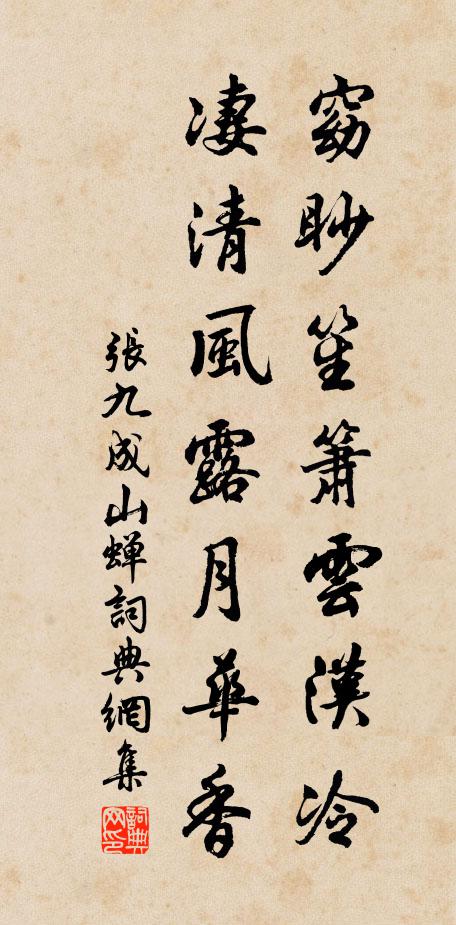 窈眇笙簫雲漢冷
凄清風露月華香
張九成山蟬詞典網集
詞典網印